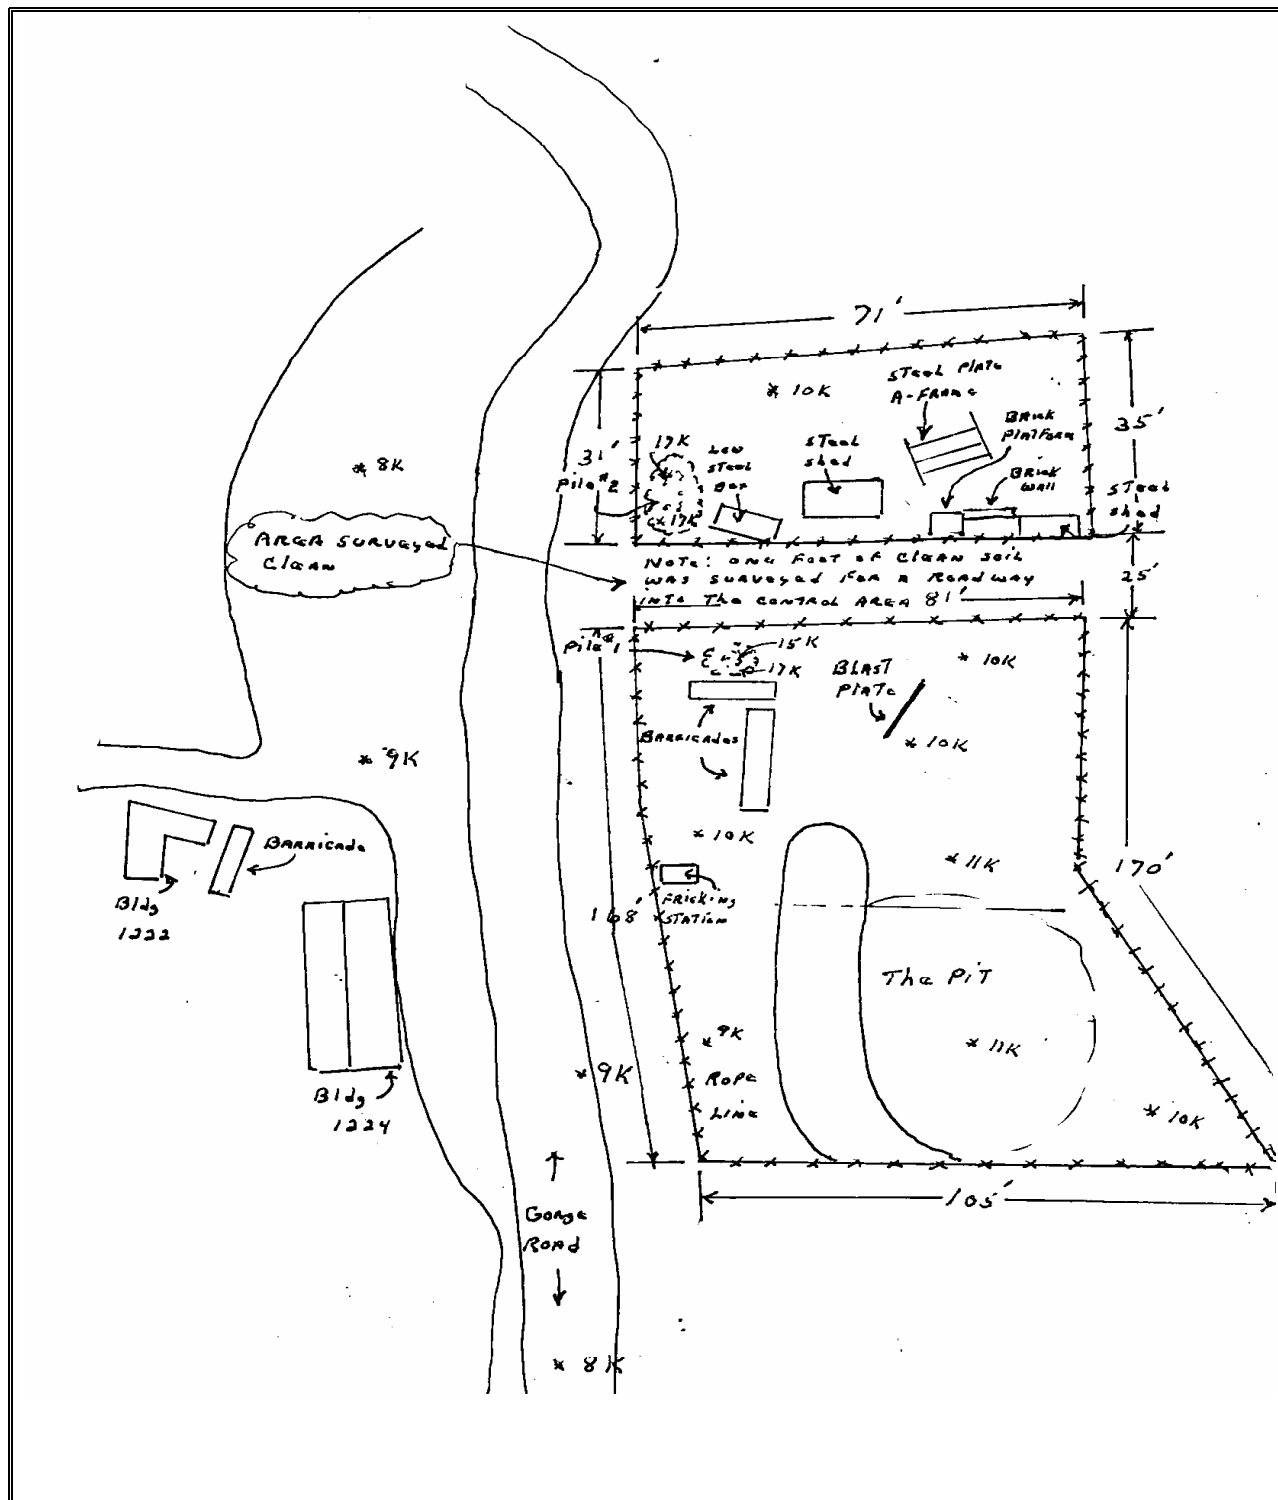 71'
* 10K
STEEL PLATE
A-FRAME
BRICK
PLATFORM
35'
31'
17K
LOW
STEEL
BOX
STEEL
Shed
BRICK
WALL
STEEL
Shed
* 8K
Pile #2
17K
AREA SURVEYED
CLEAN
NOTE: ONE FOOT OF CLEAN SOIL
WAS SURVEYED FOR A ROADWAY
INTO THE CONTROL AREA
81'
25'
Pile #1
15K
17K
* 10K
BLAST
PLATE
BARRICADES
* 10K
* 9K
* 10K
BARRICADE
* 11K
170'
Bldg
1222
168'
STATION
The PIT
* 9K
* 11K
* 9K
ROPE
LINE
* 10K
Bldg
1224
105'
GORGE
ROAD
* 8K